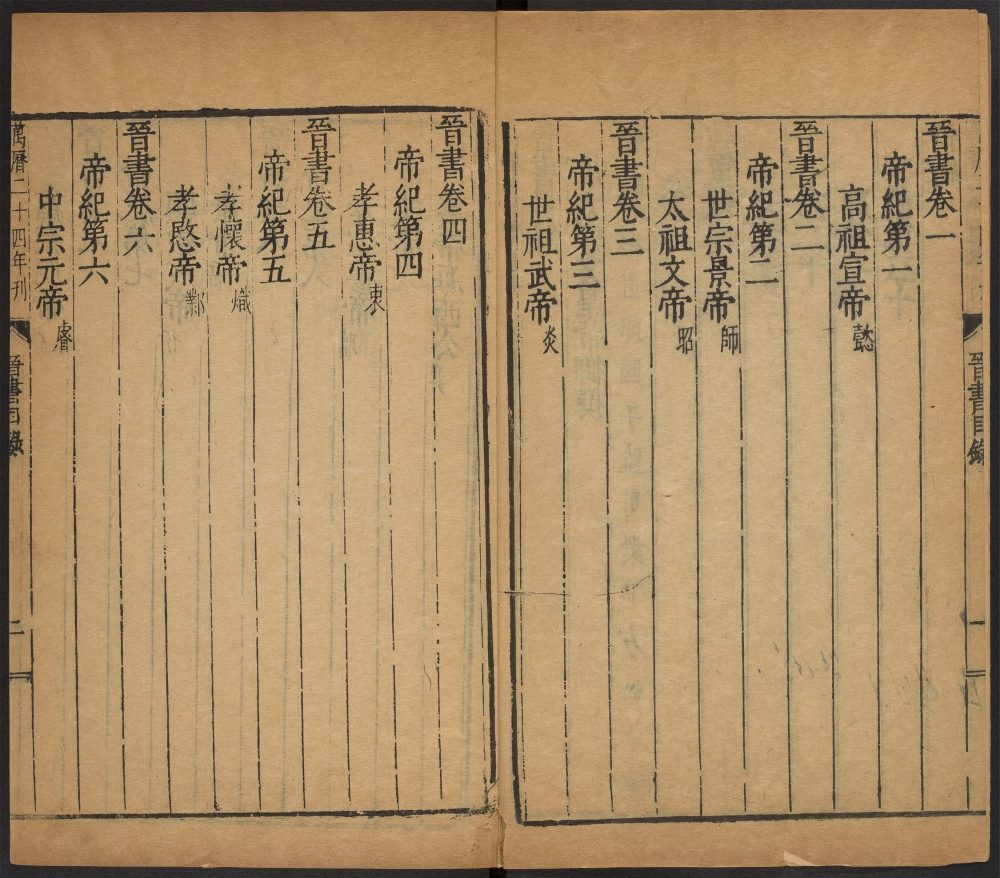 晉書卷一
帝紀第一
高祖宣帝懿
晉書卷二
帝紀第二
世宗景帝師
太祖文帝昭
晉書卷三
帝紀第三
世祖武帝炎
晉書目錄
一
晉書卷四
帝紀第四
孝惠帝衷
晉書卷五
帝紀第五
孝懷帝熾
孝愍帝鄴
晉書卷六
帝紀第六
中宗元帝睿
萬曆二十四年刊
晉書目錄
二